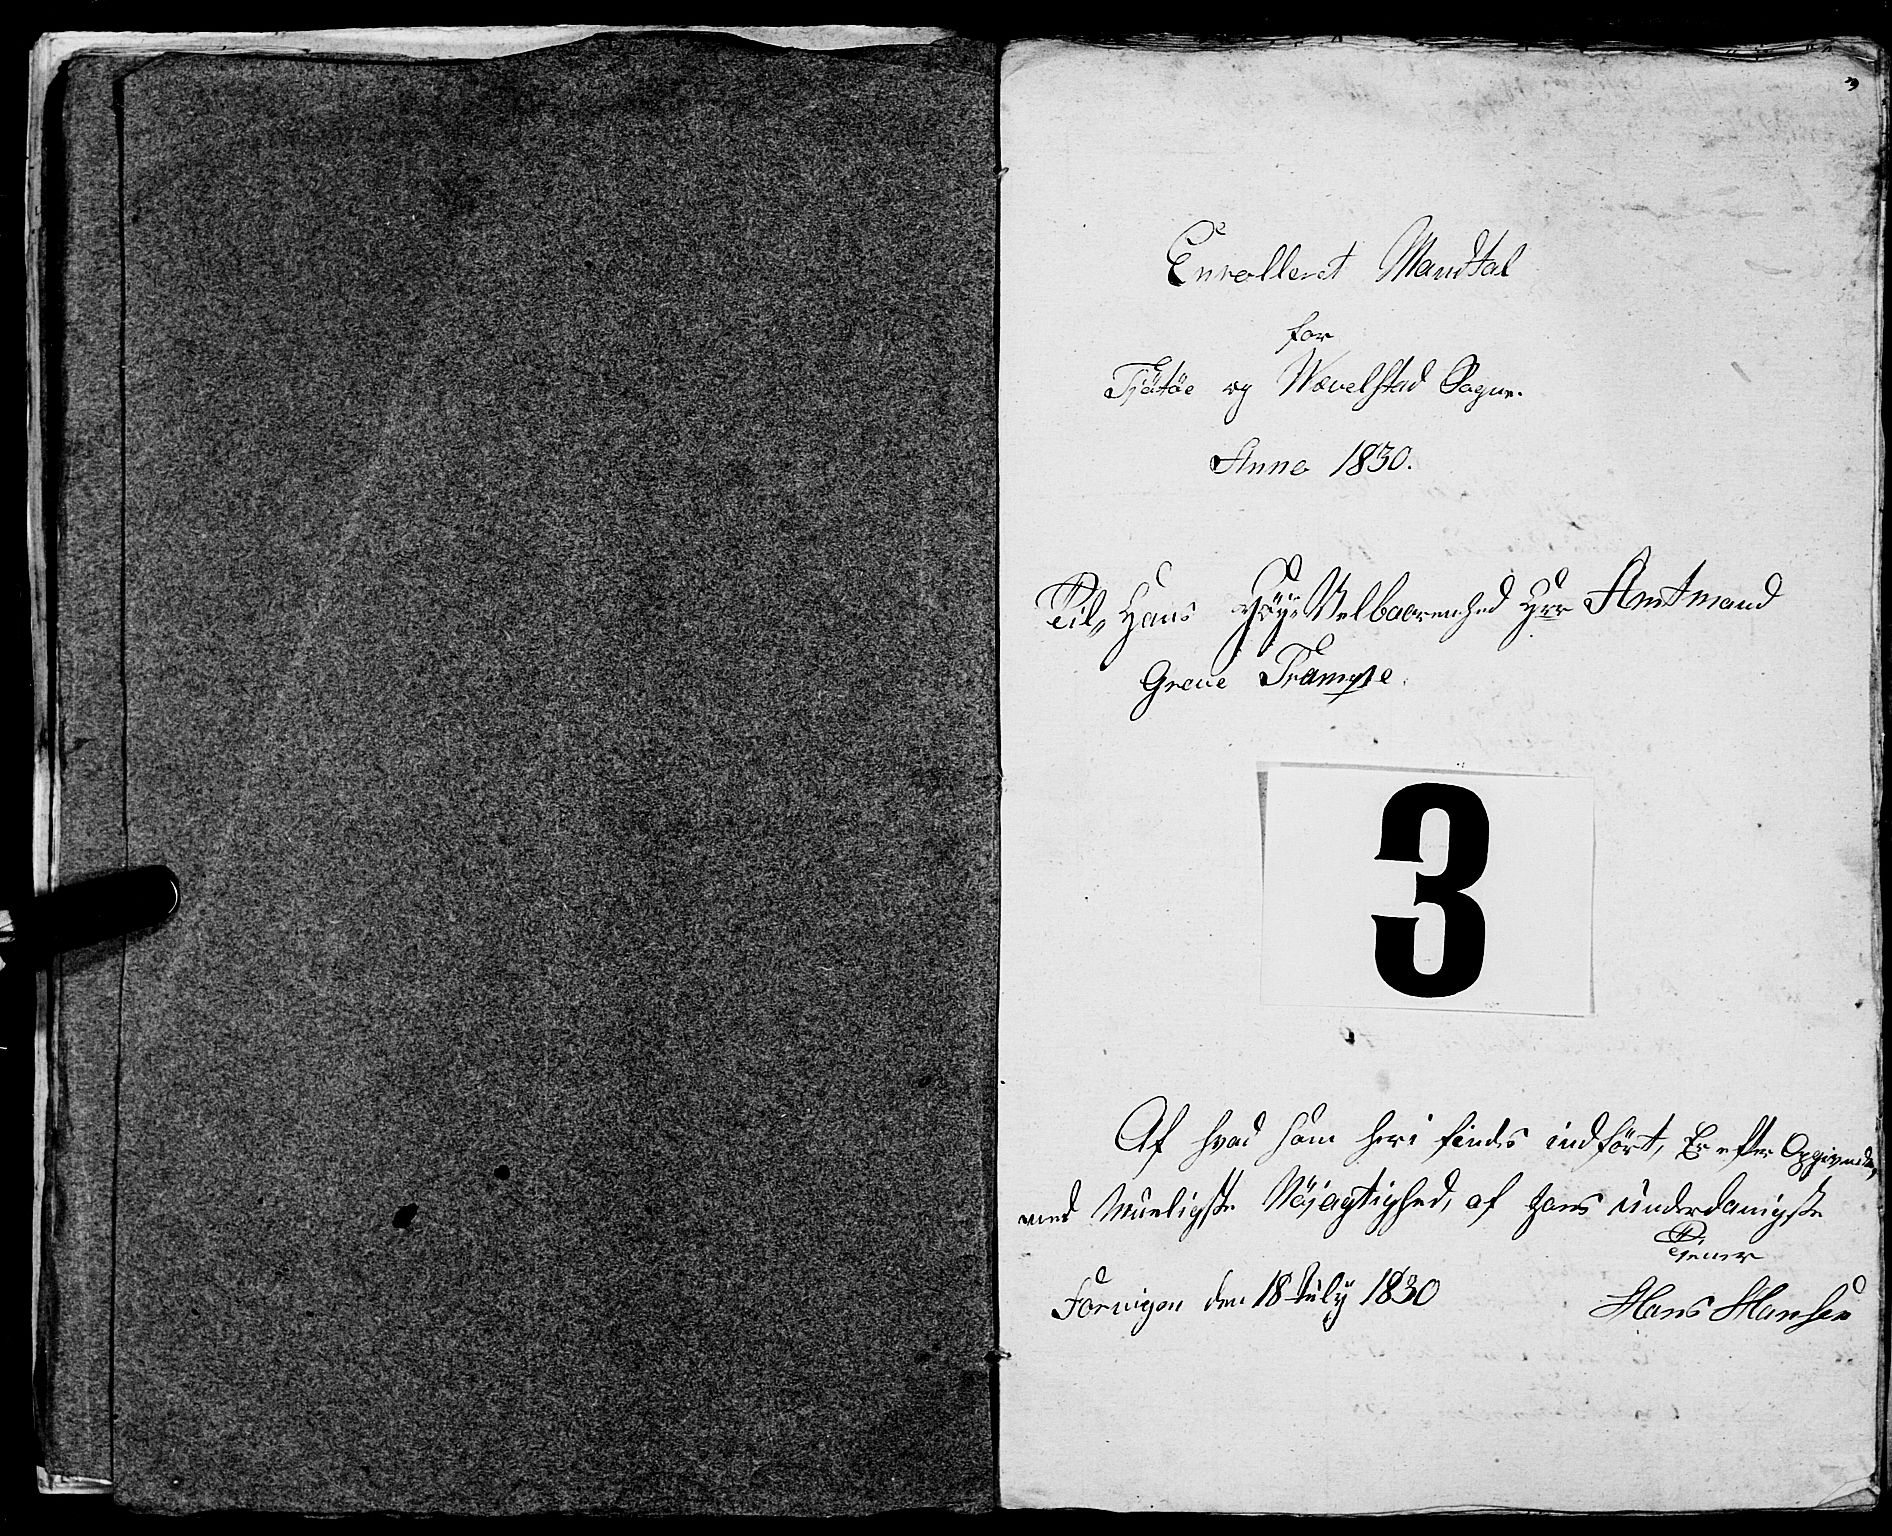 3
Enrolleret Mandtal
for
Tjøtöe og Wævelstad Sogne.
Anno 1830.
Til Hans Höy Velbaarenhed Hrr Amtmand
Greve Trampe.
3
Af hvad som heri findes indfört, Er efter Opgivende,
med Mueligste Nöjagtighed, af hans underdanigste
Tiener
Forvigen den 18 July 1830 Hans Hansen